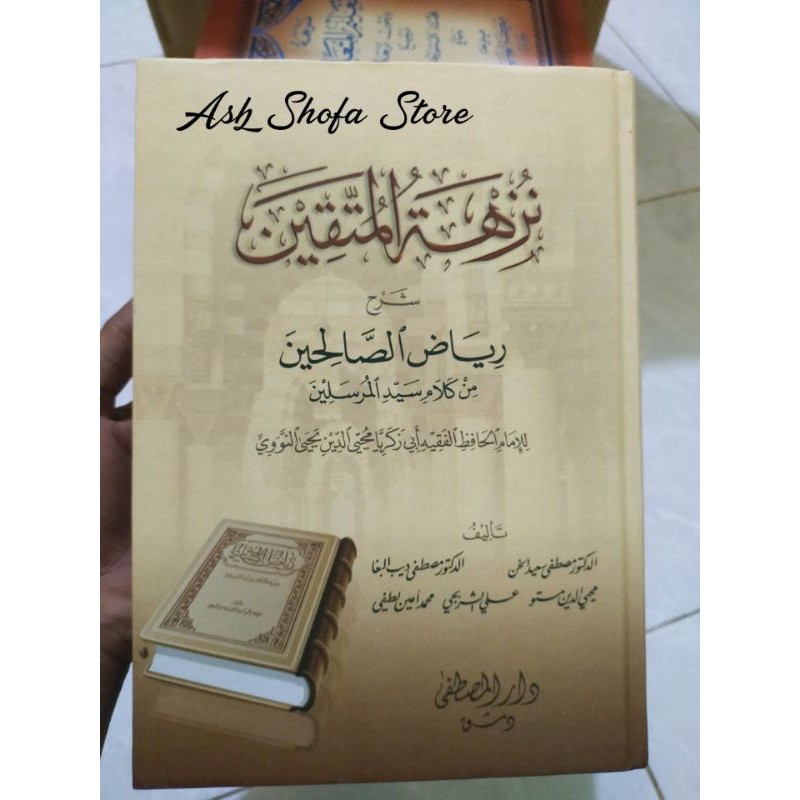 Ash Shofa Store
نُزْهَةُ المُتَّقِيْنَ
شَرْح
رِيَاضِ الصَّالِحِينَ
مِنْ كَلَامِ سَيِّدِ المُرْسَلِيْنَ
لِلإِمَامِ الحَافِظِ الفَقِيهِ أَبِي زَكَرِيَّا مُحْيِي الدِّينِ يَحْيَى النَّوَوِيِّ
تَأْلِيفُ
الدكتور مصطفى سعيد الخن الدكتور مصطفى ديب البغا
محيي الدين مستو علي الشربجي محمد أمين لطفي
دار المصطفى
دمشق